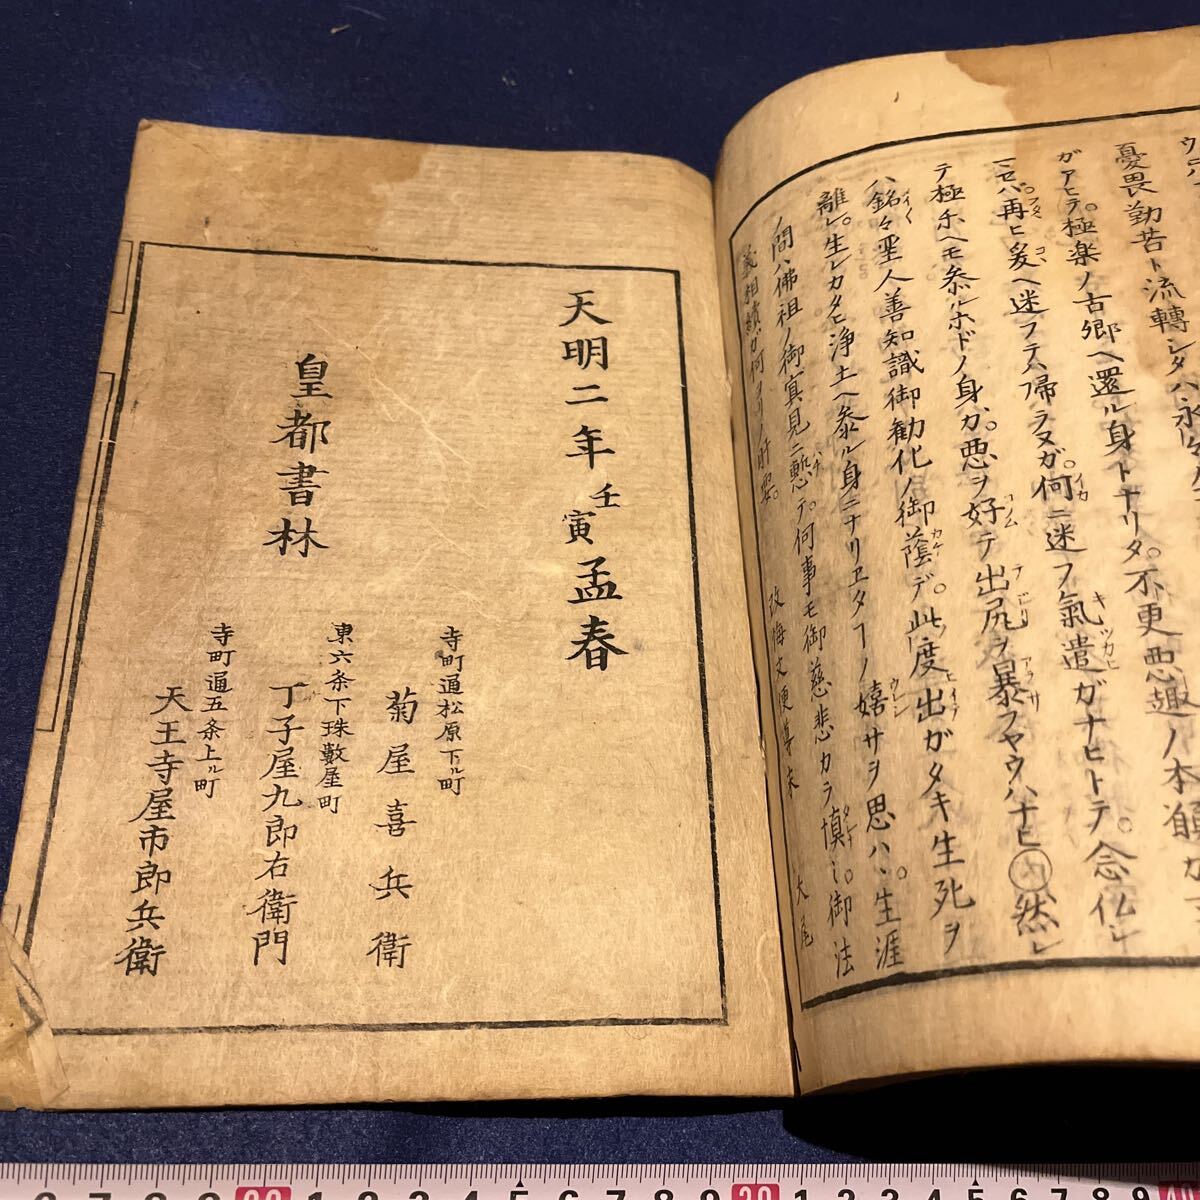 憂畏勤苦ト流轉シタハ永ク
ガアヒテ。極楽ノ古郷ヘ還ル身トナリタ。不更悪趣ノ本願ガ
ニセバ再ヒ爰ヘ迷フテハ帰ラヌガ。何ニ迷フ氣遣ガナヒトテ。念仏シ
テ極未ヘモ参ルホドノ身ガ。悪ヲ好テ出尻ヲ暴フヤウハナヒ 然レ
ハ銘々聖人善知識御勧化ノ御蔭デ。此度出ガタキ生死ヲ
離レ。生レカタヒ浄土ヘ参ル身ニナリヱタ ノ嬉サヲ思ハヽ。生涯
ノ間ハ佛祖ノ御冥見ニ慙テ。何事モ御慈悲カラ慎ミ。御法
義相續ガ何ヨリノ肝要。 改悔文便導末 大尾
天明二年壬寅孟春
皇都書林
寺町通松原下ル町
菊屋喜兵衛
東六条下珠數屋町
丁子屋九郎右衛門
寺町通五条上ル町
天王寺屋市郎兵衛